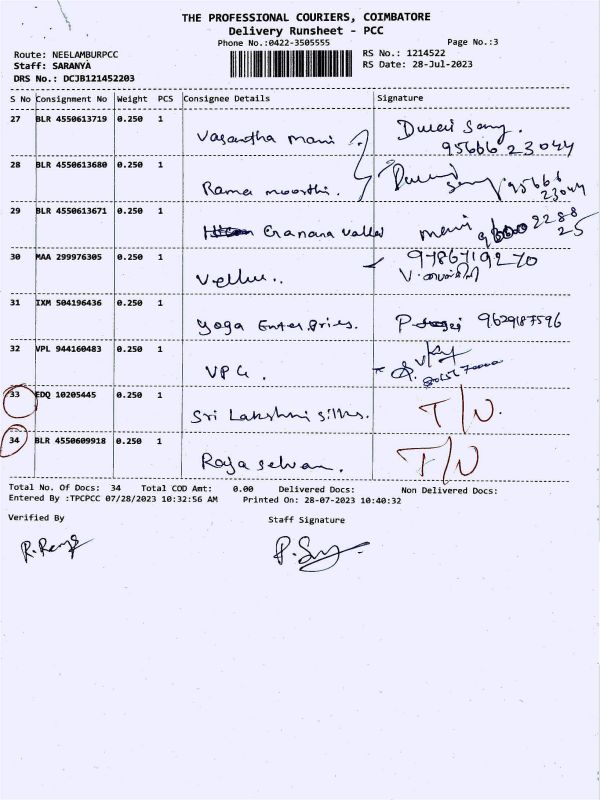 THE PROFESSIONAL COURIERS, COIMBATORE
Delivery Runsheet - PCC
Phone No.:0422-3505555 Page No.:3
Route: NEELAMBURPCC RS No.: 1214522
Staff: SARANYA RS Date: 28-Jul-2023
DRS No.: DCJB121452203
S No Consignment No Weight PCS Consignee Details Signature
27 BLR 4550613719 0.250 1 Vasantha mani Durai Samy.
95666 23044
28 BLR 4550613680 0.250 1 Rama moorthi. 95666
23044
29 BLR 4550613671 0.250 1 Gnanana vallal mani
30 MAA 299976305 0.250 1 Vellu.. 9786719270
31 IXM 504196436 0.250 1 Yoga Enterprises. 9629187596
32 VPL 944160483 0.250 1 VPG.
33 EDQ 10205445 0.250 1 Sri Lakshmi silks. T/N.
34 BLR 4550609918 0.250 1 Raja selvan. T/N
Total No. Of Docs: 34 Total COD Amt: 0.00 Delivered Docs: Non Delivered Docs:
Entered By :TPCPCC 07/28/2023 10:32:56 AM Printed On: 28-07-2023 10:40:32
Verified By Staff Signature